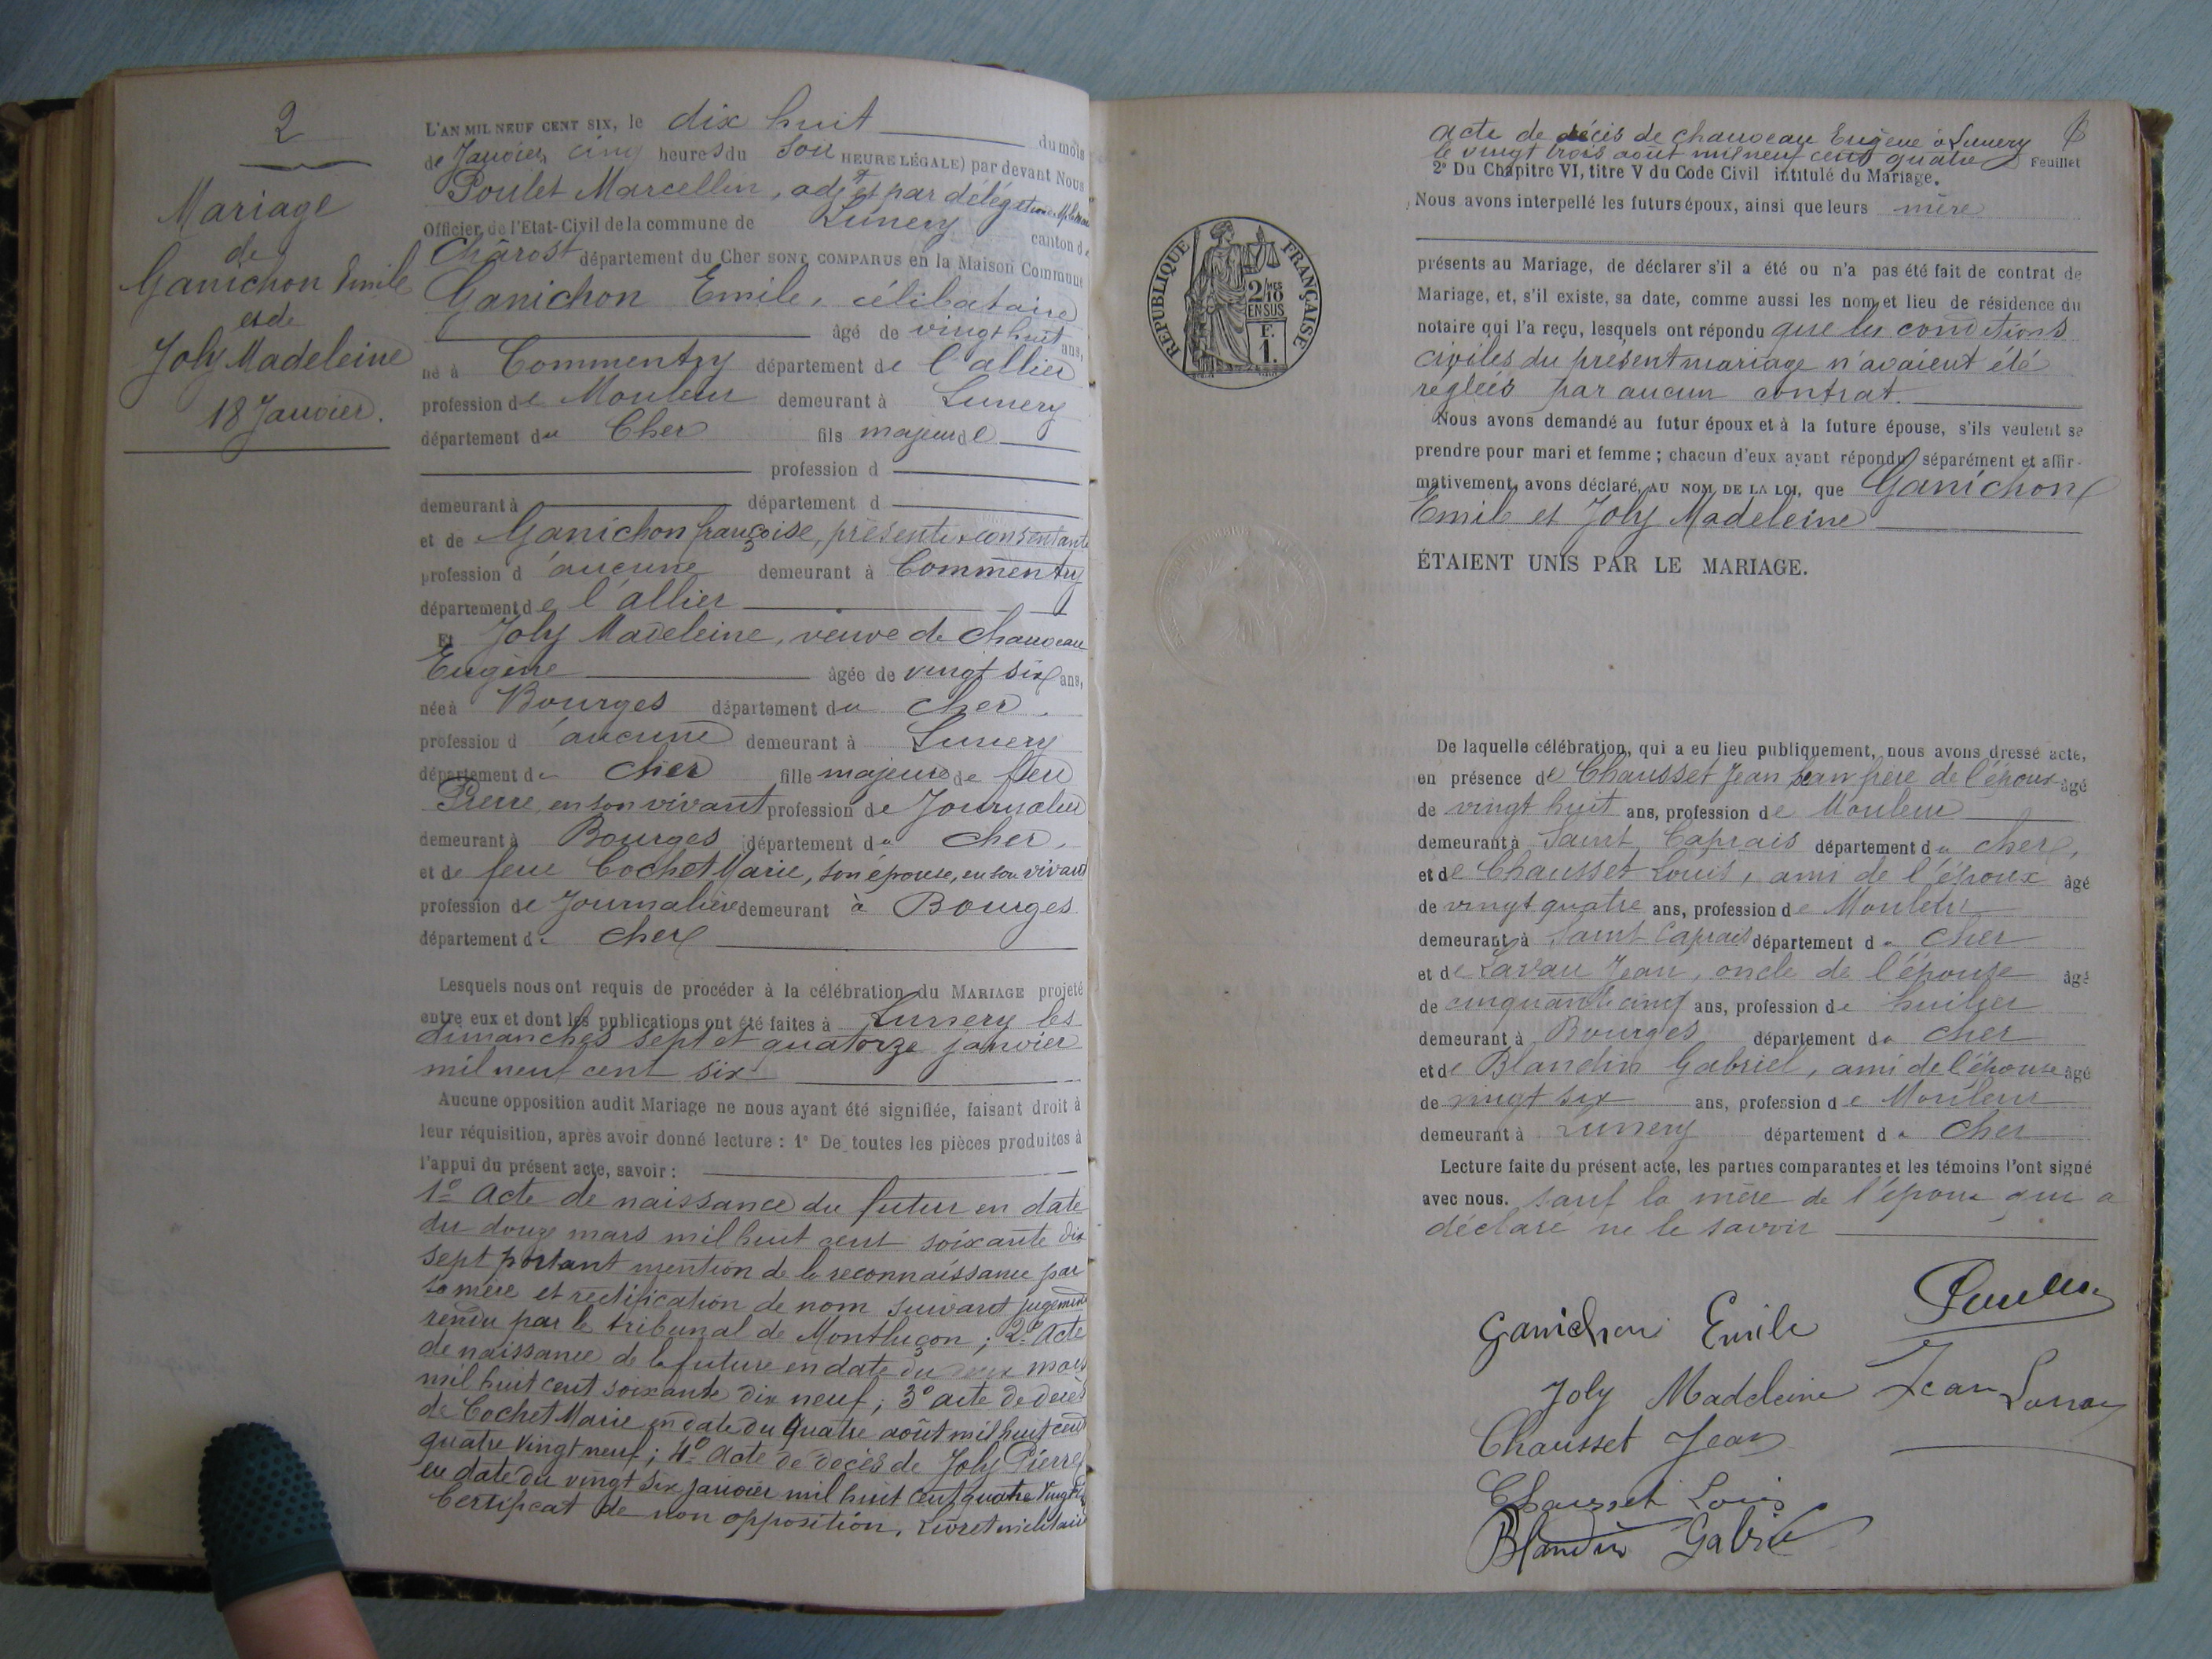 2
Mariage
de
Ganichon Emile
et de
Joly Madeleine
18 Janvier.
L'AN MIL NEUF CENT SIX, le dix huit du mois
de Janvier, cinq heures du soir HEURE LÉGALE) par devant Nous
Poulet Marcellin, adjt et par délégation
Officier de l'Etat-Civil de la commune de Lunery canton de
Chârost département du Cher SONT COMPARUS en la Maison Commune
Ganichon Emile, célibataire
âgé de vingt huit ans,
né à Commentry département de l'allier
profession de Mouleur demeurant à Lunery
département du Cher fils majeur de
profession d
demeurant à département d
et de Ganichon françoise, présente & consentante
profession d'aucune demeurant à Commentry
département de l'allier
Et Joly Madeleine, veuve de Chauveau
Eugène âgée de vingt six ans,
née à Bourges département du cher
profession d'aucune demeurant à Lunery
département du cher fille majeure de feu
Pierre, en son vivant profession de Journalier
demeurant à Bourges département du cher,
et de feue Cochet Marie, son épouse, en son vivant
profession de Journalière demeurant à Bourges
département du cher
Lesquels nous ont requis de procéder à la célébration du MARIAGE projeté
entre eux et dont les publications ont été faites à Lunery les
dimanches sept et quatorze janvier
mil neuf cent six
Aucune opposition audit Mariage ne nous ayant été signifiée, faisant droit à
leur réquisition, après avoir donné lecture : 1° De toutes les pièces produites à
l'appui du présent acte, savoir :
1° Acte de naissance du futur en date
du douze mars mil huit cent soixante dix
sept portant mention de la reconnaissance par
sa mère et rectification de nom suivant jugement
rendu par le tribunal de Montluçon ; 2° Acte
de naissance de la future en date du mars
mil huit cent soixante dix neuf ; 3° acte de décès
de Cochet Marie en date du quatre août mil huit cent
quatre vingt neuf ; 4° Acte de décès de Joly Pierre
en date du vingt six janvier mil huit cent quatre vingt
Certificat de non opposition, Livret militaire
acte de décès de chauveau Eugène à Lunery
le vingt trois août mil neuf cent quatre Feuillet
2° Du Chapitre VI, titre V du Code Civil intitulé du Mariage.
Nous avons interpellé les futurs époux, ainsi que leurs mère
présents au Mariage, de déclarer s'il a été ou n'a pas été fait de contrat de
Mariage, et, s'il existe, sa date, comme aussi les nom et lieu de résidence du
notaire qui l'a reçu, lesquels ont répondu que les conditions
civiles du présent mariage n'avaient été
réglées par aucun contrat.
Nous avons demandé au futur époux et à la future épouse, s'ils veulent se
prendre pour mari et femme ; chacun d'eux ayant répondu séparément et affir-
mativement, avons déclaré, AU NOM DE LA LOI, que Ganichon
Emile et Joly Madeleine
ÉTAIENT UNIS PAR LE MARIAGE.
RÉPUBLIQUE FRANÇAISE
2/10 MES
EN SUS
F.
1.
De laquelle célébration, qui a eu lieu publiquement, nous avons dressé acte,
en présence de Chausset Jean frère de l'époux âgé
de vingt huit ans, profession de Mouleur
demeurant à Saint Caprais département du cher,
et de Chausset Louis, ami de l'époux âgé
de vingt quatre ans, profession de Mouleur
demeurant à Saint Caprais département du Cher
et de Lavau Jean, oncle de l'épouse âgé
de cinquante cinq ans, profession de huilier
demeurant à Bourges département du cher
et de Blandin Gabriel, ami de l'épouse âgé
de vingt six ans, profession de Mouleur
demeurant à Lunery département du Cher
Lecture faite du présent acte, les parties comparantes et les témoins l'ont signé
avec nous. sauf la mère de l'époux qui a
déclaré ne le savoir
Poulet
Ganichon Emile
Joly Madeleine Jean Lavau
Chausset Jean
Chausset Louis
Blandin Gabriel